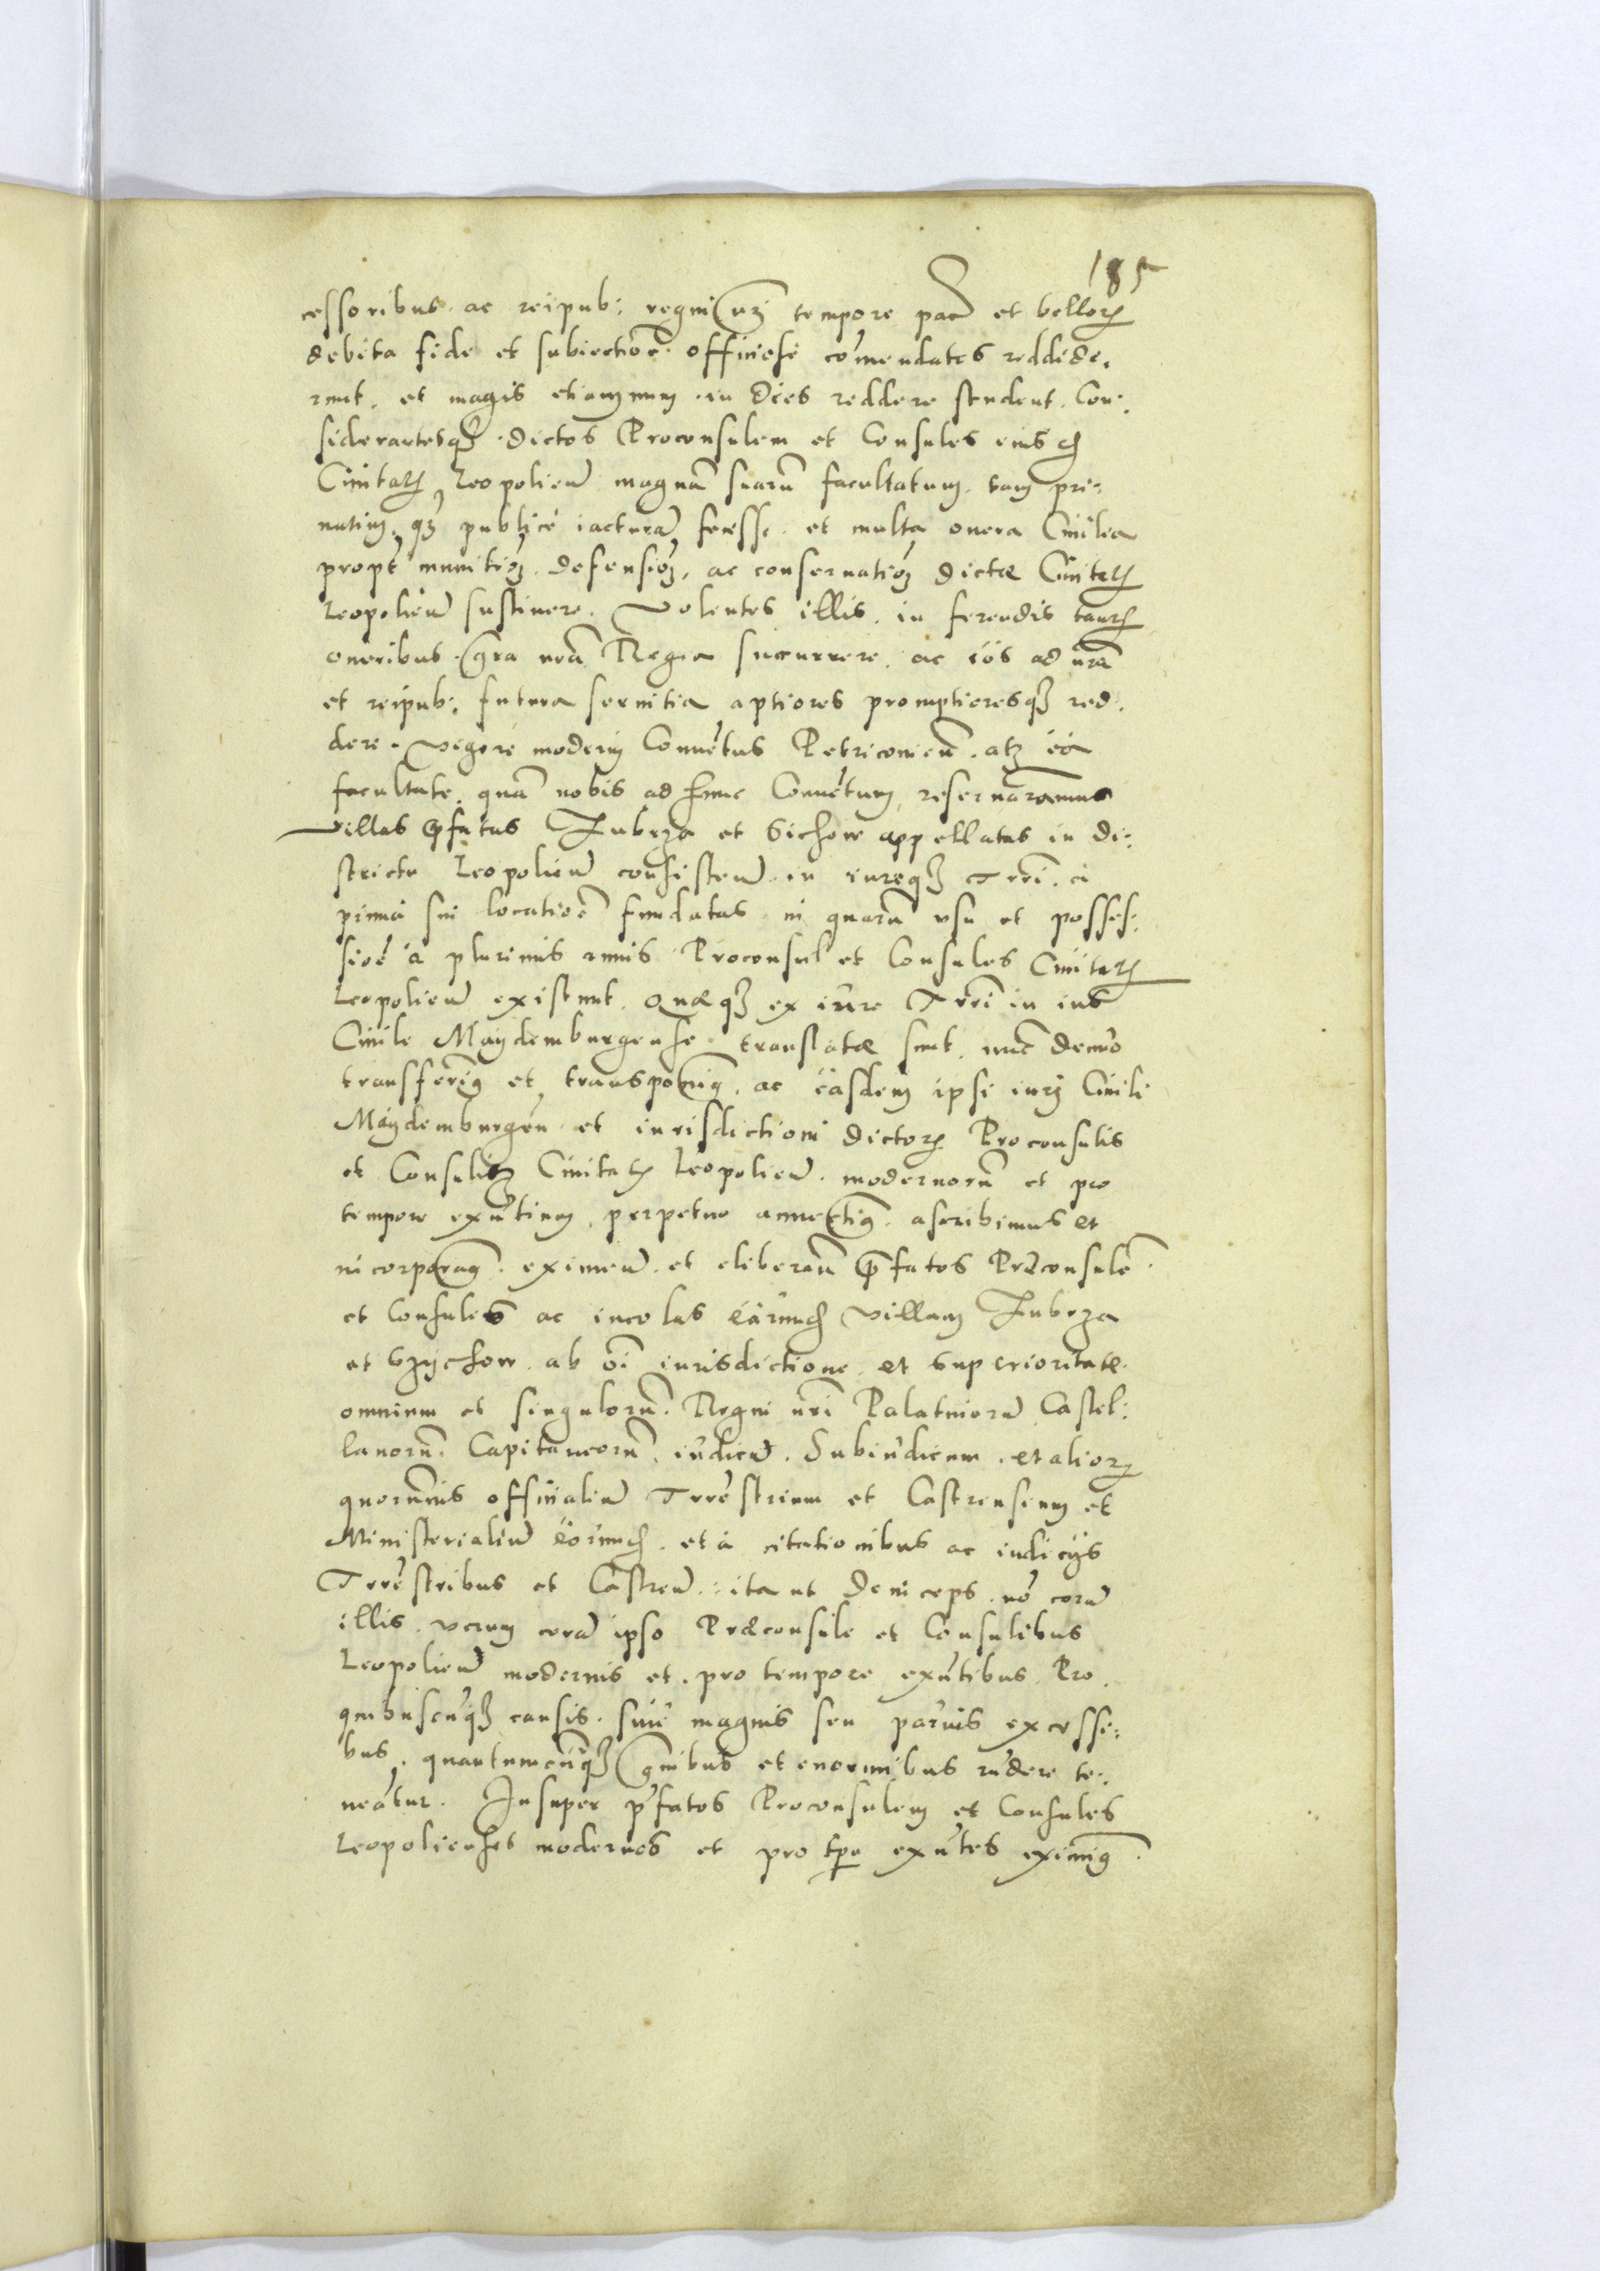 185
cessoribus ac reipub: regni nri tempore pacis et belloꝝ
debita fide et subiectioē officiose comendatos reddide,
runt, et magis etiam num in dies reddere student. Con:
siderantesqʒ dictos Proconsulem et Consules eius
Ciuitatꝭ Leopolien magnā suarū facultatum tam pri:
uatim qʒ publicè iacturā fecisse et multa onera Ciuilia
propt munitioʒ, defensioʒ, ac conseruatioʒ dictæ Ciuitatꝭ
Leopolien sustinere. Volentes illis in ferendis tantꝭ
oneribus gra nrā Regia succurrere, ac eos ad nrā
et reipub: futura seruitia aptiores promptioresqʒ red,
dere. Vigore moderni Conuētus Petricouien. atqʒ eā
facultate, quā nobis ad hunc Conuētum reseruaramus
villas p̄fatas Zubrza et Sichow appellatas in di:
strictu Leopolien consisten in iureqʒ Trri, ci
prima sui locatioē fundatas in quarū vsu et posses:
sioē à plurimis annis Proconsul et Consules Ciuitatꝭ
Leopolien existunt. Quæqʒ ex iure Trri in ius
Ciuile Maydemburgense translatæ sunt. nūc denuo
transferimꝰ et transponimꝰ, ac easdem ipsi iuri Ciuili
Maydemburgen et iurisdictioni dictoꝝ Proconsulis
et Consulū Ciuitatꝭ Leopolien modernorū et pro
tempore exn̄tium, perpetuo annectimꝰ ascribimus et
incorporamꝰ. eximen et eliberan p̄fatos Præconsulē
et Consules ac incolas earund villaꝝ Zubrza
et Szychow ab oi iurisdictione et superioritate
omnium et singulorū Regni nri Palatinorū Castel:
lanorū Capitaneorū, iudicū. Subiudicum et alioꝝ
quorumuis officialiū Trrestrium et Castrensium et
Ministerialiū eorund. et à citationibus ac iudicijs
Trrestribus et Castren: ita ut deinceps nō corā
illis verum corā ipso Præconsule et Consulibus
Leopolien modernis et pro tempore exn̄tibus Pro
quibuscunqʒ causis siue magnis seu paruis excessi:
bus quantumcunqʒ gnibus et enormibus rn̄dere te:
neātur. Insuper p̄fatos Proconsulem et Consules
Leopolienses modernos et pro tpe exn̄tes eximimꝰ